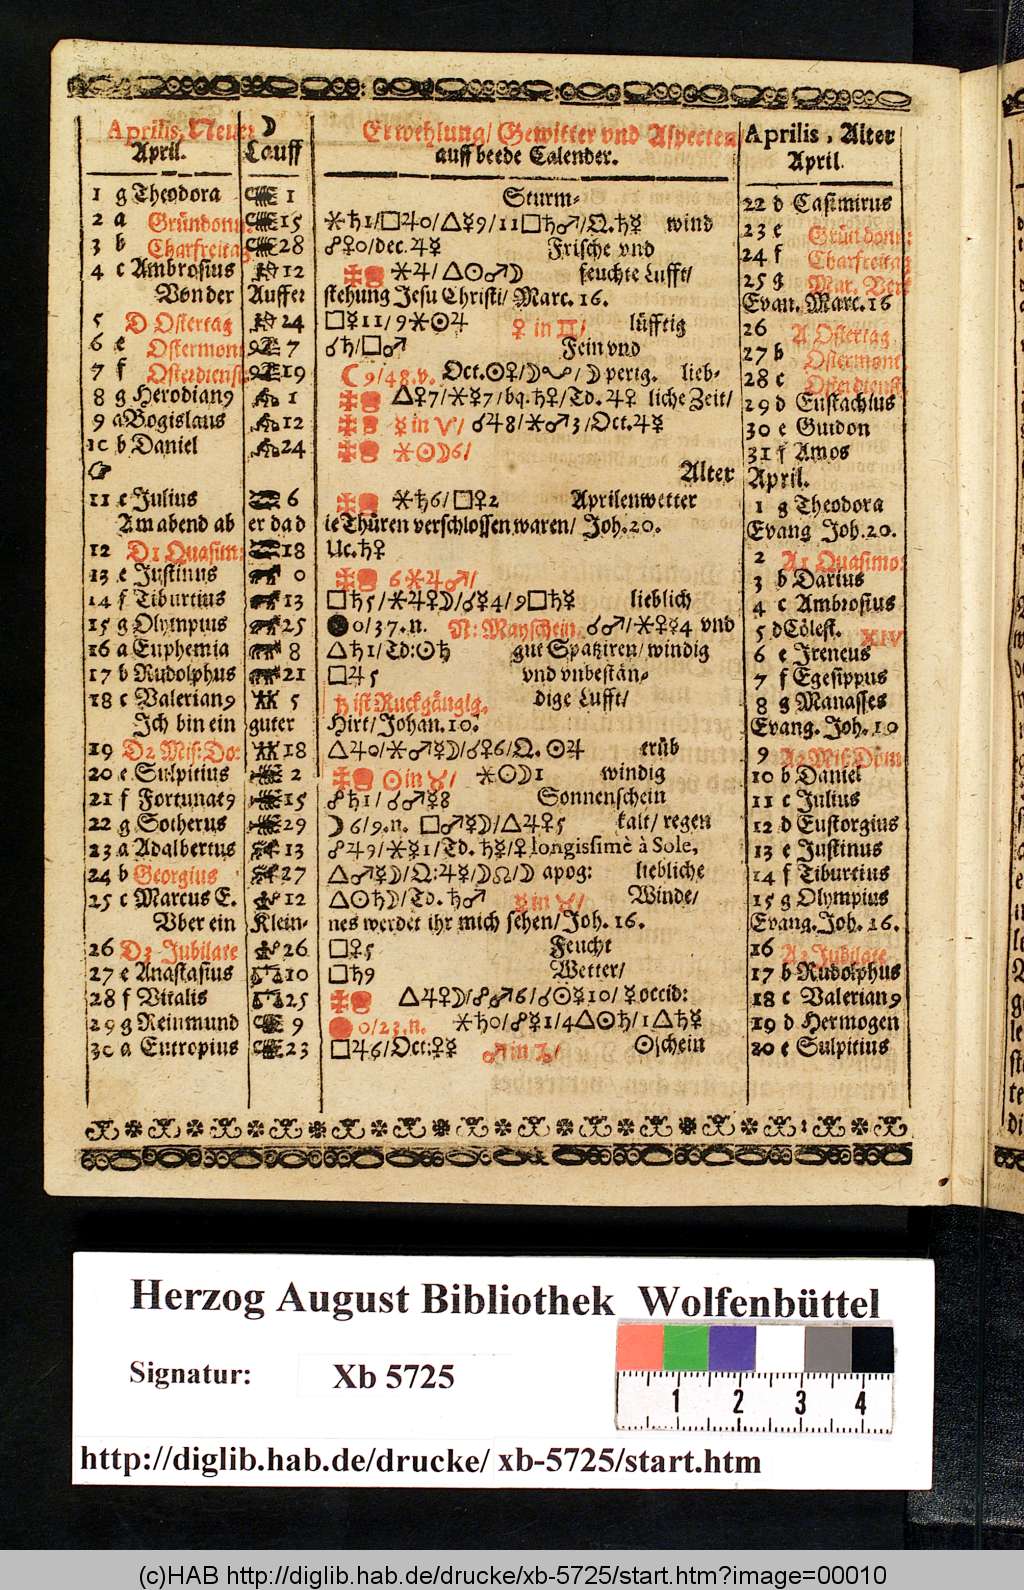 Aprilis, Neuer ☽ Erwehlung/ Gewitter vnd Aspecten Aprilis, Alter
April. Lauff auff beede Calender. April.
1 g Theodora 1 Sturm- 22 d Casimirus
2 a Gründonn: 15 ⚹♄1/□♃0/△☿9/11□♄♂/Ω.♄☿ wind 23 e Gründonn:
3 b Charfreitag 28 ☍♀0/dec.♃☿ Frische vnd 24 f Charfreitag
4 c Ambrosius 12 ⚹♃/△☉♂☽ feuchte Lufft/ 25 g Mar. Verk
Von der Auffer stehung Jesu Christi/ Marc. 16. Evan. Marc. 16
5 D Ostertag 24 □☿11/9⚹☉♃ ♀ in ♊/ lüfftig 26 A Ostertag
6 e Ostermont 7 ☌♄/□♂ Fein vnd 27 b Ostermont.
7 f Osterdienst. 19 ☾9/48.v. Oct.☉♀/☽ perig. lieb- 28 c Osterdienst.
8 g Herodian9 1 △♀7/⚹☿7/bq.♄♀/Td.♃♀ liche Zeit/ 29 d Eustachius
9 a Bogislaus 12 ☿ in ♈/ ☌♃8/⚹♂3/Oct.♃☿ 30 e Guidon
10 b Daniel 24 ⚹☉☽6/ 31 f Amos
☞ Alter April.
11 c Julius 6 ⚹♄6/□♀2 Aprilenwetter 1 g Theodora
Am abend ab er da d ie Thüren verschlossen waren/ Joh. 20. Evang Joh. 20.
12 D1 Quasim: 18 Uc.♄♀ 2 A1 Quasimo:
13 e Justinus 0 6⚹♃♂/ 3 b Darius
14 f Tiburtius 13 □♄5/⚹♃♀☽/☌☿4/9□♄☿ lieblich 4 c Ambrosius
15 g Olympius 25 ●0/37.n. N: Mayschein. ☌♂/⚹♀☿4 vnd 5 d Cölest. XIV
16 a Euphemia 8 △♄1/Td:☉♄ gut Spatziren/ windig 6 e Ireneus
17 b Rudolphus 21 □♃5 vnd vnbestän- 7 f Egesippus
18 c Valerian9 5 ♄ ist Ruckgängig. dige Lufft/ 8 g Manasses
Ich bin ein guter Hirt/ Johan. 10. Evang. Joh. 10
19 D2 Mis: Do: 18 △♃0/⚹♂☿☽/☌♀6/Ω.☉♃ trüb 9 A2 Mis: Dom
20 e Sulpitius 2 ☉ in ♉/ ⚹☉☽1 windig 10 b Daniel
21 f Fortunat9 15 ☍♄1/☌♂☿8 Sonnenschein 11 c Julius
22 g Sotherus 29 ☽6/9.n. □♂☿☽/△♃♀5 kalt/ regen 12 d Eustorgius
23 a Adalbertus 13 ☍♃9/⚹☿1/Td.♄☿/♀ longissimè à Sole, 13 e Justinus
24 b Georgius 27 △♂☿☽/Ω:♃☿/☽☊/☽ apog: liebliche 14 f Tiburtius
25 c Marcus E. 12 △☉♄☽/Td.♄♂ ☿ in ♉/ Winde/ 15 g Olympius
Vber ein Klein- nes werdet ihr mich sehen/ Joh. 16. Evang. Joh. 16.
26 D3 Jubilate 26 □♀5 Feucht 16 A3 Jubilate
27 e Anastasius 10 □♄9 Wetter/ 17 b Rudolphus
28 f Vitalis 25 △♃♀☽/☍♂6/☌☉☿10/☿ occid: 18 c Valerian9
29 g Reinmund 9 0/23.n. ⚹♄0/☍☿1/4△☉♄/1△♄☿ 19 d Hermogen
30 a Eutropius 23 □♃6/Oct:♀☿ ♂ in ♑/ ☉schein 20 e Sulpitius
Herzog August Bibliothek Wolfenbüttel
Signatur: Xb 5725
1 2 3 4
http://diglib.hab.de/drucke/ xb-5725/start.htm
(c)HAB http://diglib.hab.de/drucke/xb-5725/start.htm?image=00010